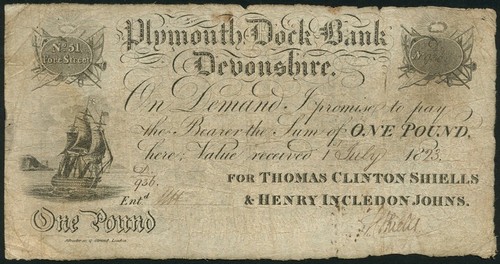 No. 51
Fore Street
Plymouth Dock Bank
Devonshire.
On Demand I promise to pay
the Bearer the Sum of ONE POUND,
here; Value received 1 July 1823.
FOR THOMAS CLINTON SHIELLS
& HENRY INCLEDON JOHNS.
D
956.
Entd.
One Pound
Shiells